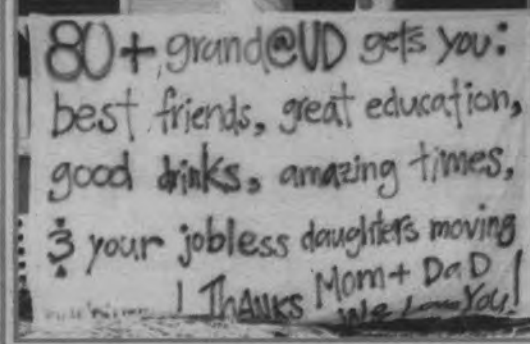 80+ grand@UD gets you:
best friends, great education,
good drinks, amazing times,
& your jobless daughters moving
! Thanks Mom + Dad
We Love You!